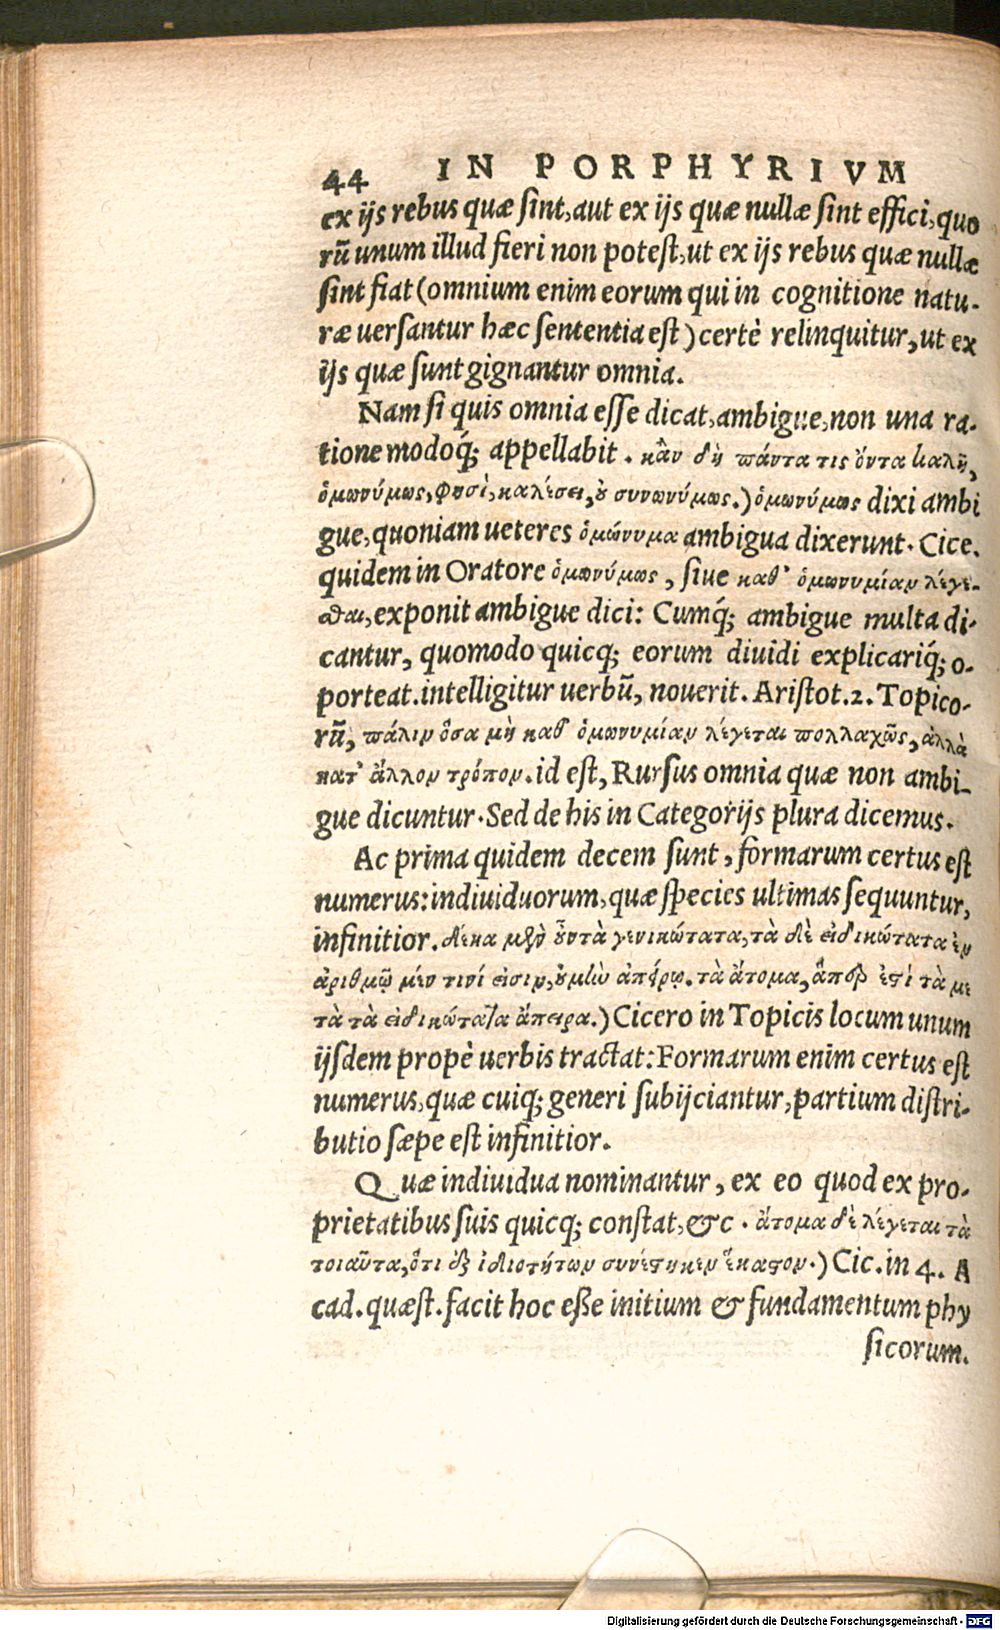 44 IN PORPHYRIVM
ex ijs rebus quæ sint, aut ex ijs quæ nullæ sint effici, quo
rũ unum illud fieri non potest, ut ex ijs rebus quæ nullæ
sint fiat (omnium enim eorum qui in cognitione natu-
ræ uersantur hæc sententia est) certè relinquitur, ut ex
ijs quæ sunt gignantur omnia.
Nam si quis omnia esse dicat, ambigue, non una ra-
tione modoq́; appellabit. κἂν δὴ πάντα τις ὄντα καλῇ,
ὁμωνύμως, φησὶ, καλέσει, ȣ συνωνύμως.) ὁμωνύμως dixi ambi
gue, quoniam ueteres ὁμώνυμα ambigua dixerunt. Cice.
quidem in Oratore ὁμωνύμως, siue καθ' ὁμωνυμίαν λέγε-
σθαι, exponit ambigue dici: Cumq́; ambigue multa di-
cantur, quomodo quicq; eorum diuidi explicariq́; o-
porteat. intelligitur uerbũ, nouerit. Aristot. 2. Topico-
rũ, πάλιν ὅσα μὴ καθ' ὁμωνυμίαν λέγεται πολλαχῶς, ἀλλὰ
κατ' ἄλλον τρόπον. id est, Rursus omnia quæ non ambi-
gue dicuntur. Sed de his in Categorijs plura dicemus.
Ac prima quidem decem sunt, formarum certus est
numerus: indiuiduorum, quæ species ultimas sequuntur,
infinitior. δέκα μὲν ȣν τὰ γενικώτατα, τὰ δὲ εἰδικώτατα ἐν
ἀριθμῷ μέν τινί εἰσιν, ȣ μὴν ἀπείρῳ. τὰ ἄτομα, ἅπερ ἐστὶ τὰ με
τὰ τὰ εἰδικώτατα ἄπειρα.) Cicero in Topicis locum unum
ijsdem propè uerbis tractat: Formarum enim certus est
numerus, quæ cuiq; generi subijciantur, partium distri-
butio sæpe est infinitior.
Quæ indiuidua nominantur, ex eo quod ex pro-
prietatibus suis quicq; constat, &c. ἄτομα δὲ λέγεται τὰ
τοιαῦτα, ὅτι ἐξ ἰδιοτήτων συνέστηκεν ἕκαστον.) Cic. in 4. A
cad. quæst. facit hoc esse initium & fundamentum phy
sicorum.
Digitalisierung gefördert durch die Deutsche Forschungsgemeinschaft - DFG